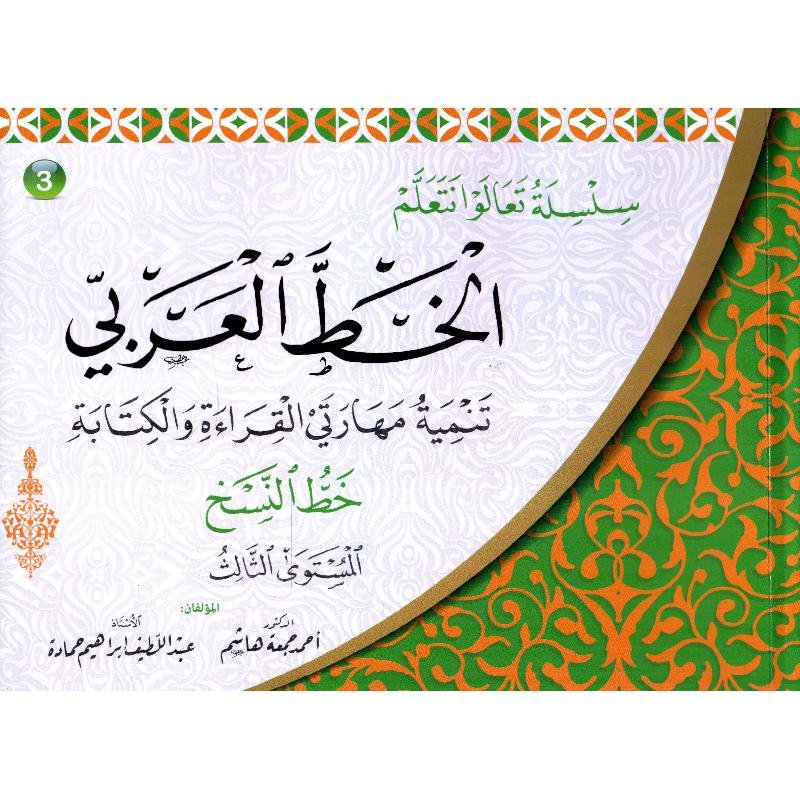 3
سِلْسِلَةُ تَعَالَوْا نَتَعَلَّمْ
الْخَطَّ الْعَرَبِيّ
تَنْمِيَةُ مَهَارَتَيْ الْقِرَاءَةِ وَالْكِتَابَةِ
خَطُّ النَّسْخِ
الْمُسْتَوَى الثَّالِثُ
المؤلفان:
الدكتور
أحمد جمعة هاشم
الأستاذ
عبد اللطيف ابراهيم حمادة